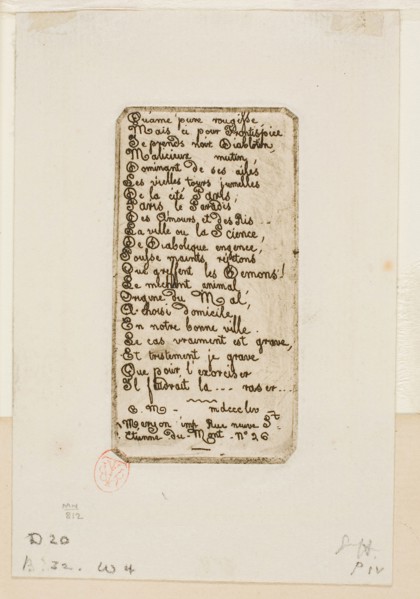 Qu'âme pure rougisse,
Mais ci pour Frontispice
Je prends noir Diablotin,
Malicieux mutin,
Dominant de ses ailes
Les vielles tours jumelles
De la cité Paris,
Paris le Paradis
Des Amours, et des Ris ...
La ville ou la Science,
De Diabolique engence,
Pousse maints rejetons
Que greffent les Demons!
Le méchant animal
Origine du Mal,
A choisi domicile
En notre bonne ville.
Le cas vraiment est grave,
Et tristement je grave
Que pour l'exorciser
Il faudrait la ... raser ...
C. M - mdccclıv
Meryon imp Rue neuve St
Etienne du-Mont - N° 26
MH
812
D 20
B. 32. W 4
P IV